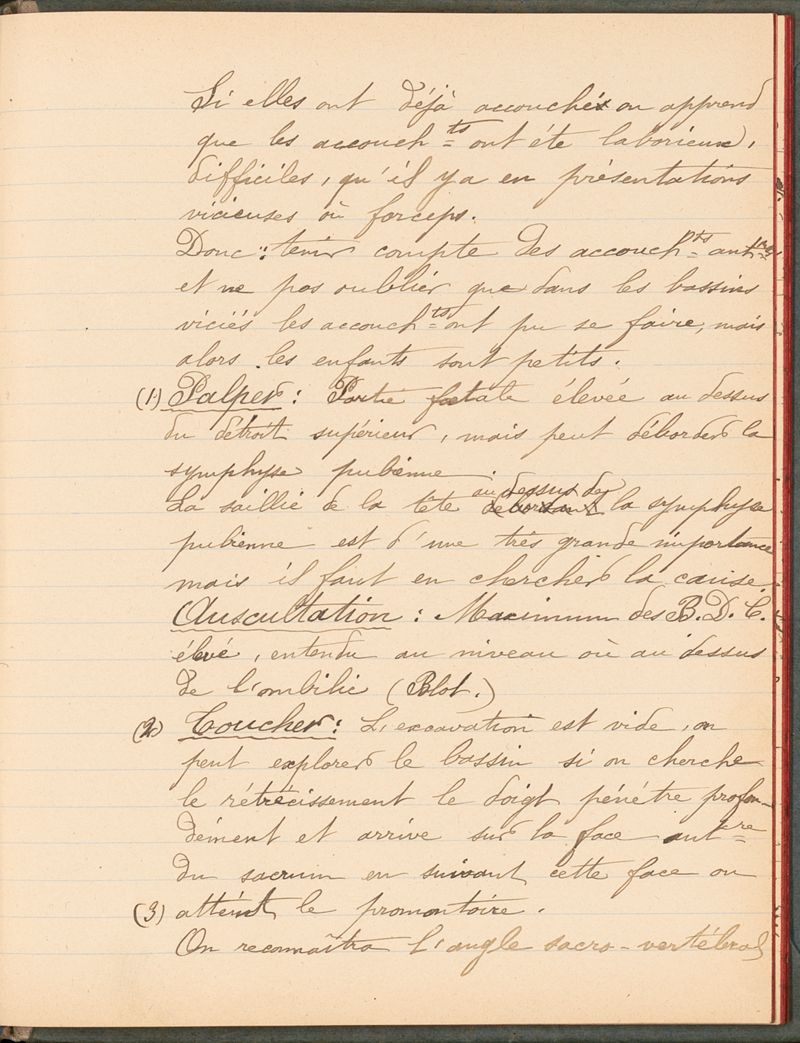 Si elles ont déjà accouchéx on apprend
que les accouch=ts ont été laborieux,
difficiles, qu'il y a en présentations
vicieuses où forceps.
Donc : tenir compte des accouch=ts ant=
et ne pas oublier que dans les bassins
viciés les accouch=ts ont pu se faire, mais
alors les enfants sont petits.
(1) Palper : Partie fœtale élevée au dessus
du détroit supérieur, mais peut déborder la
symphyse pubienne.
au dessus de
La saillie de la tête débordant la symphyse
pubienne est d'une très grande importance
mais il faut en chercher la cause.
Auscultation : Maximum des B.D.C.
élevé, entendu au niveau où au dessus
de l'ombilic (Blot.)
(2) Toucher : L'excavation est vide, on
peut explorer le bassin si on cherche
le rétrécissement le doigt pénétre profon-
dément et arrive sur la face ant=re
du sacrum en suivant cette face on
(3) atteint le promontoire.
On reconnaîtra l'angle sacro-vertébral